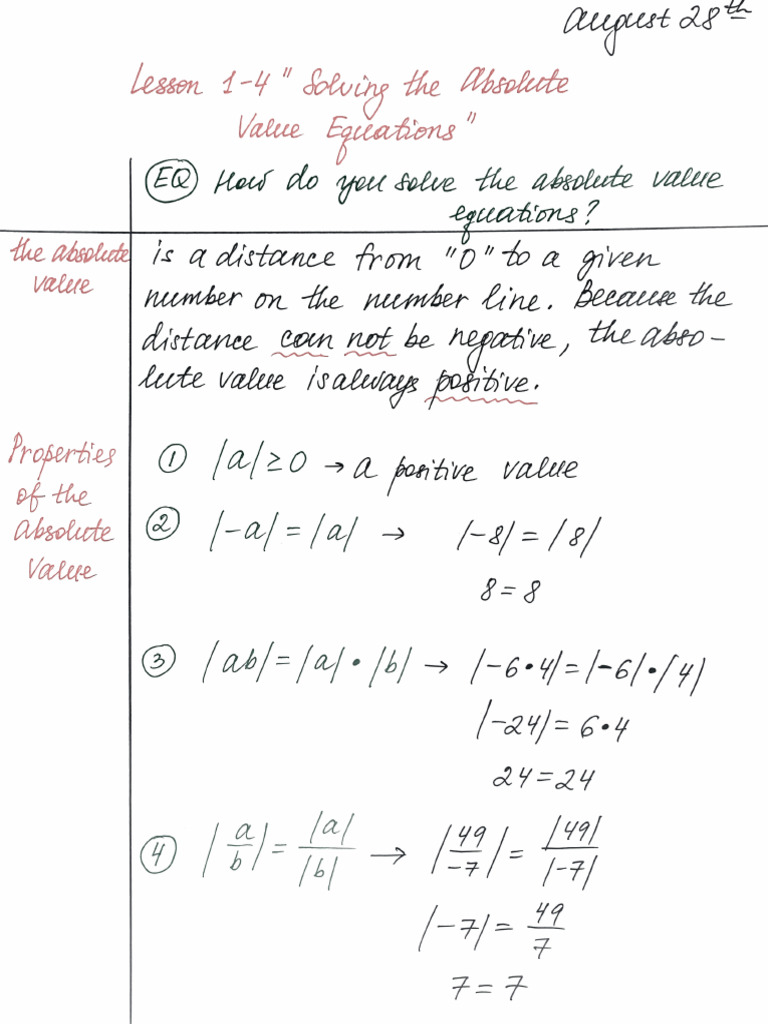 August 28th
Lesson 1-4 " Solving the Absolute
Value Equations"
EQ How do you solve the absolute value
equations?
the absolute
value
is a distance from "0" to a given
number on the number line. Because the
distance can not be negative, the abso-
lute value is always positive.
Properties
of the
Absolute
Value
① |a| ≥ 0 → a positive value
② |-a| = |a| → |-8| = |8|
8 = 8
③ |ab| = |a| • |b| → |-6•4| = |-6| • |4|
|-24| = 6•4
24 = 24
④ |a/b| = |a|/|b| → |49/-7| = |49|/|-7|
|-7| = 49/7
7 = 7